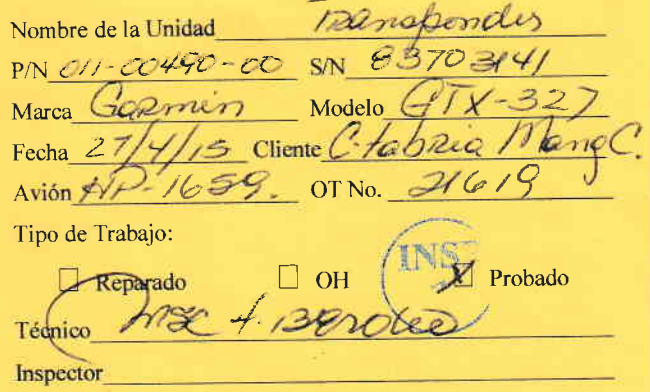 Nombre de la Unidad Transponder
P/N 011-00490-00 S/N 83703141
Marca Garmin Modelo GTX-327
Fecha 27/4/15 Cliente C.
Avión HP-1659. OT No. 21619
Tipo de Trabajo:
Reparado OH INS X Probado
Técnico
Inspector